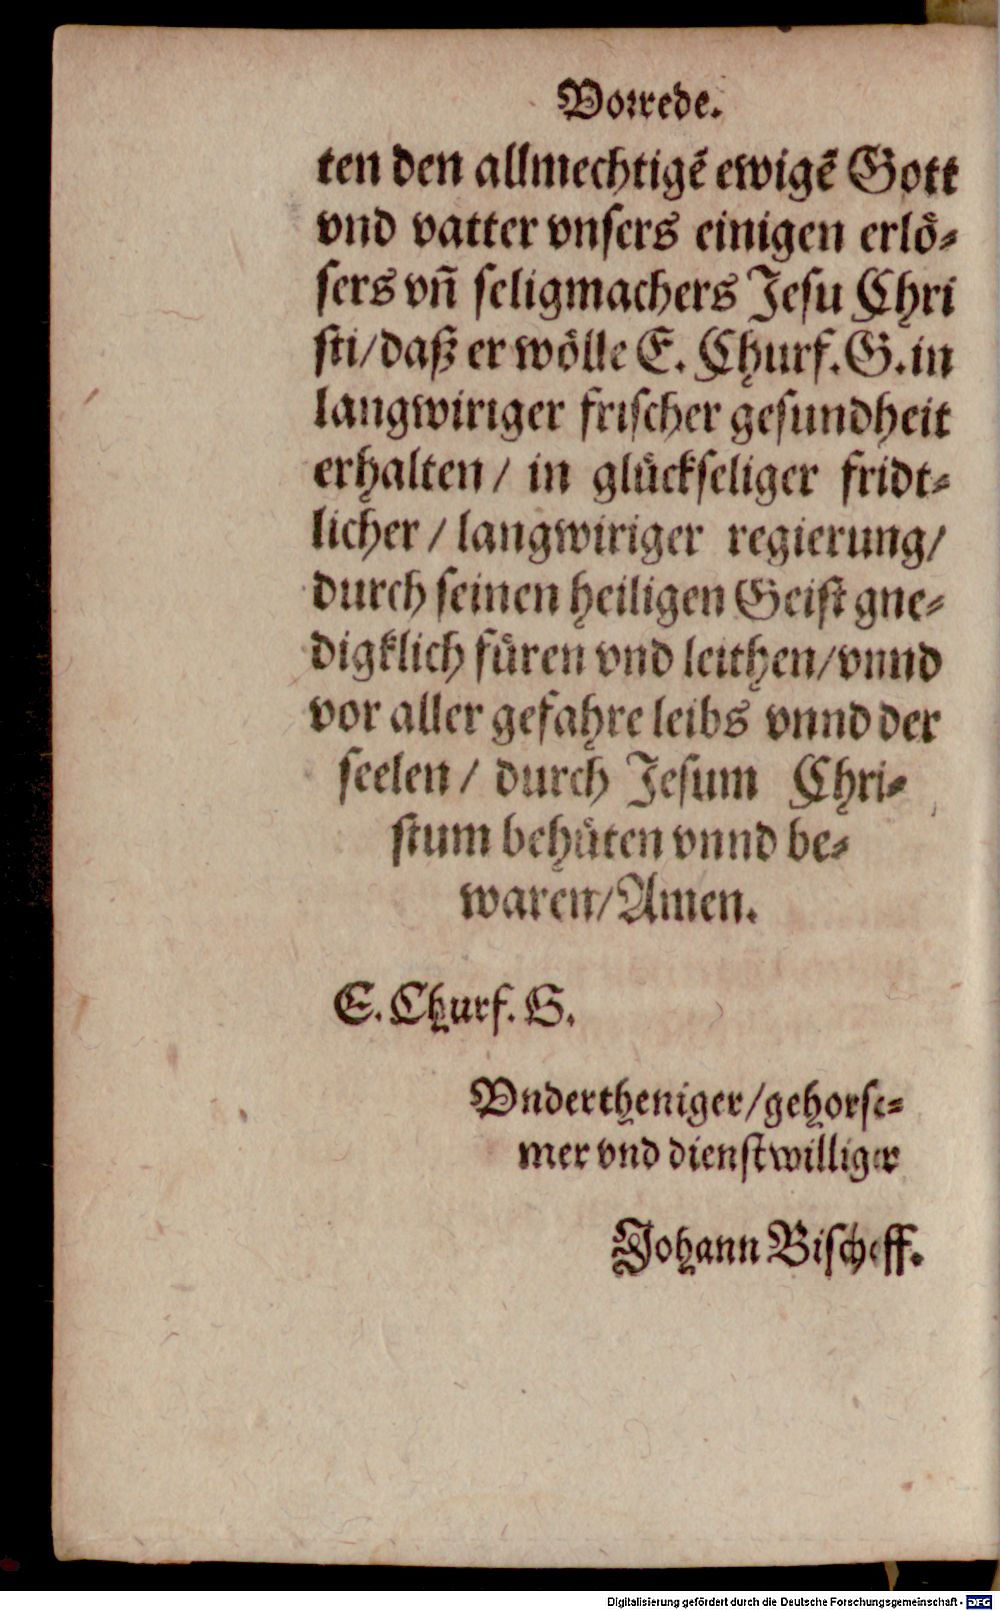 Vorrede.
ten den allmechtigē ewigē Gott
vnd vatter vnsers einigen erlö⸗
sers vñ seligmachers Jesu Chri
sti/daß er wölle E. Churf. G. in
langwiriger frischer gesundheit
erhalten/ in glückseliger fridt⸗
licher / langwiriger regierung/
durch seinen heiligen Geist gne⸗
digklich füren vnd leithen/vnnd
vor aller gefahre leibs vnnd der
seelen / durch Jesum Chri⸗
stum behüten vnnd be⸗
waren/Amen.
E. Churf. G.
Vndertheniger/gehorse⸗
mer vnd dienstwilliger
Johann Bischoff.
Digitalisierung gefördert durch die Deutsche Forschungsgemeinschaft - DFG